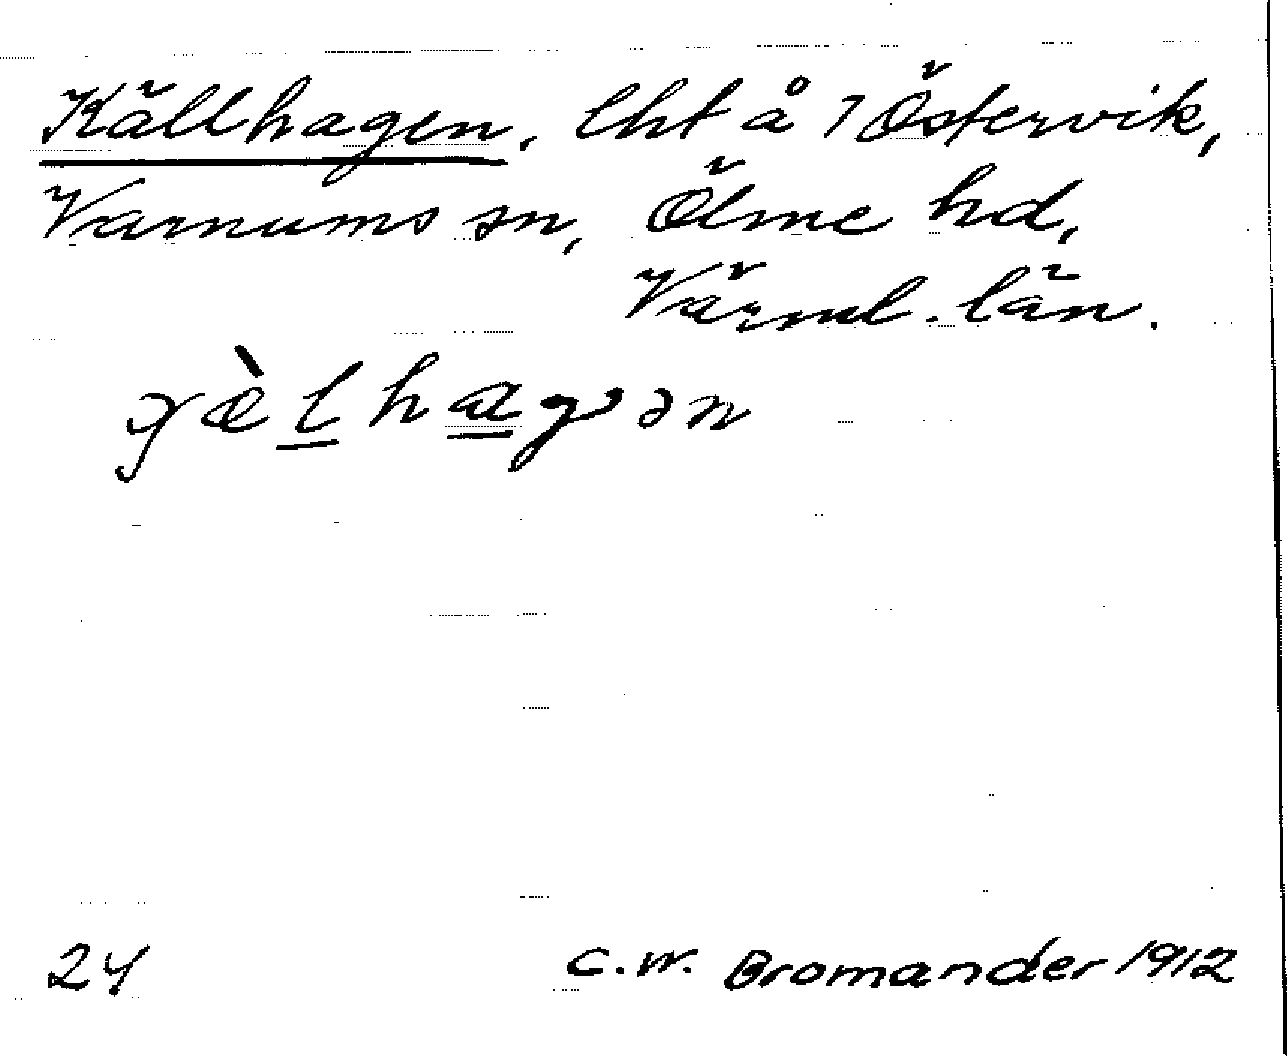 Källhagen. lht å 7 Östervik,
Varnums sn, Ölme hd,
Värml. län.
gæ̀lhagən
24 C.W. Bromander 1912